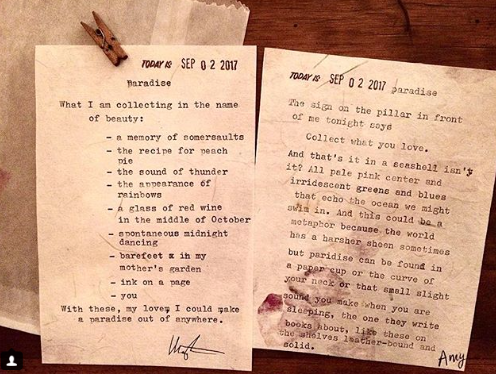 TODAY IS SEP 02 2017
Paradise
What I am collecting in the name
of beauty:
- a memory of somersaults
- the recipe for peach
pie
- the sound of thunder
- the appearance of
rainbows
- a glass of red wine
in the middle of October
- spontaneous midnight
dancing
- barefeet x in my
mother's garden
- ink on a page
- you
With these, my love, I could make
a paradise out of anywhere.
TODAY IS SEP 02 2017 paradise
The sign on the pillar in front
of me tonight says
Collect what you love.
And that's it in a seashell isn't
it? All pale pink center and
irridescent greens and blues
that echo the ocean we might
swim in. And this could be a
metaphor because the world
has a harsher sheen sometimes
but paridise can be found in
a paper cup or the curve of
your neck or that small slight
sound you make when you are
sleeping, the one they write
books about, like these on
the shelves leather-bound and
solid.
Amy